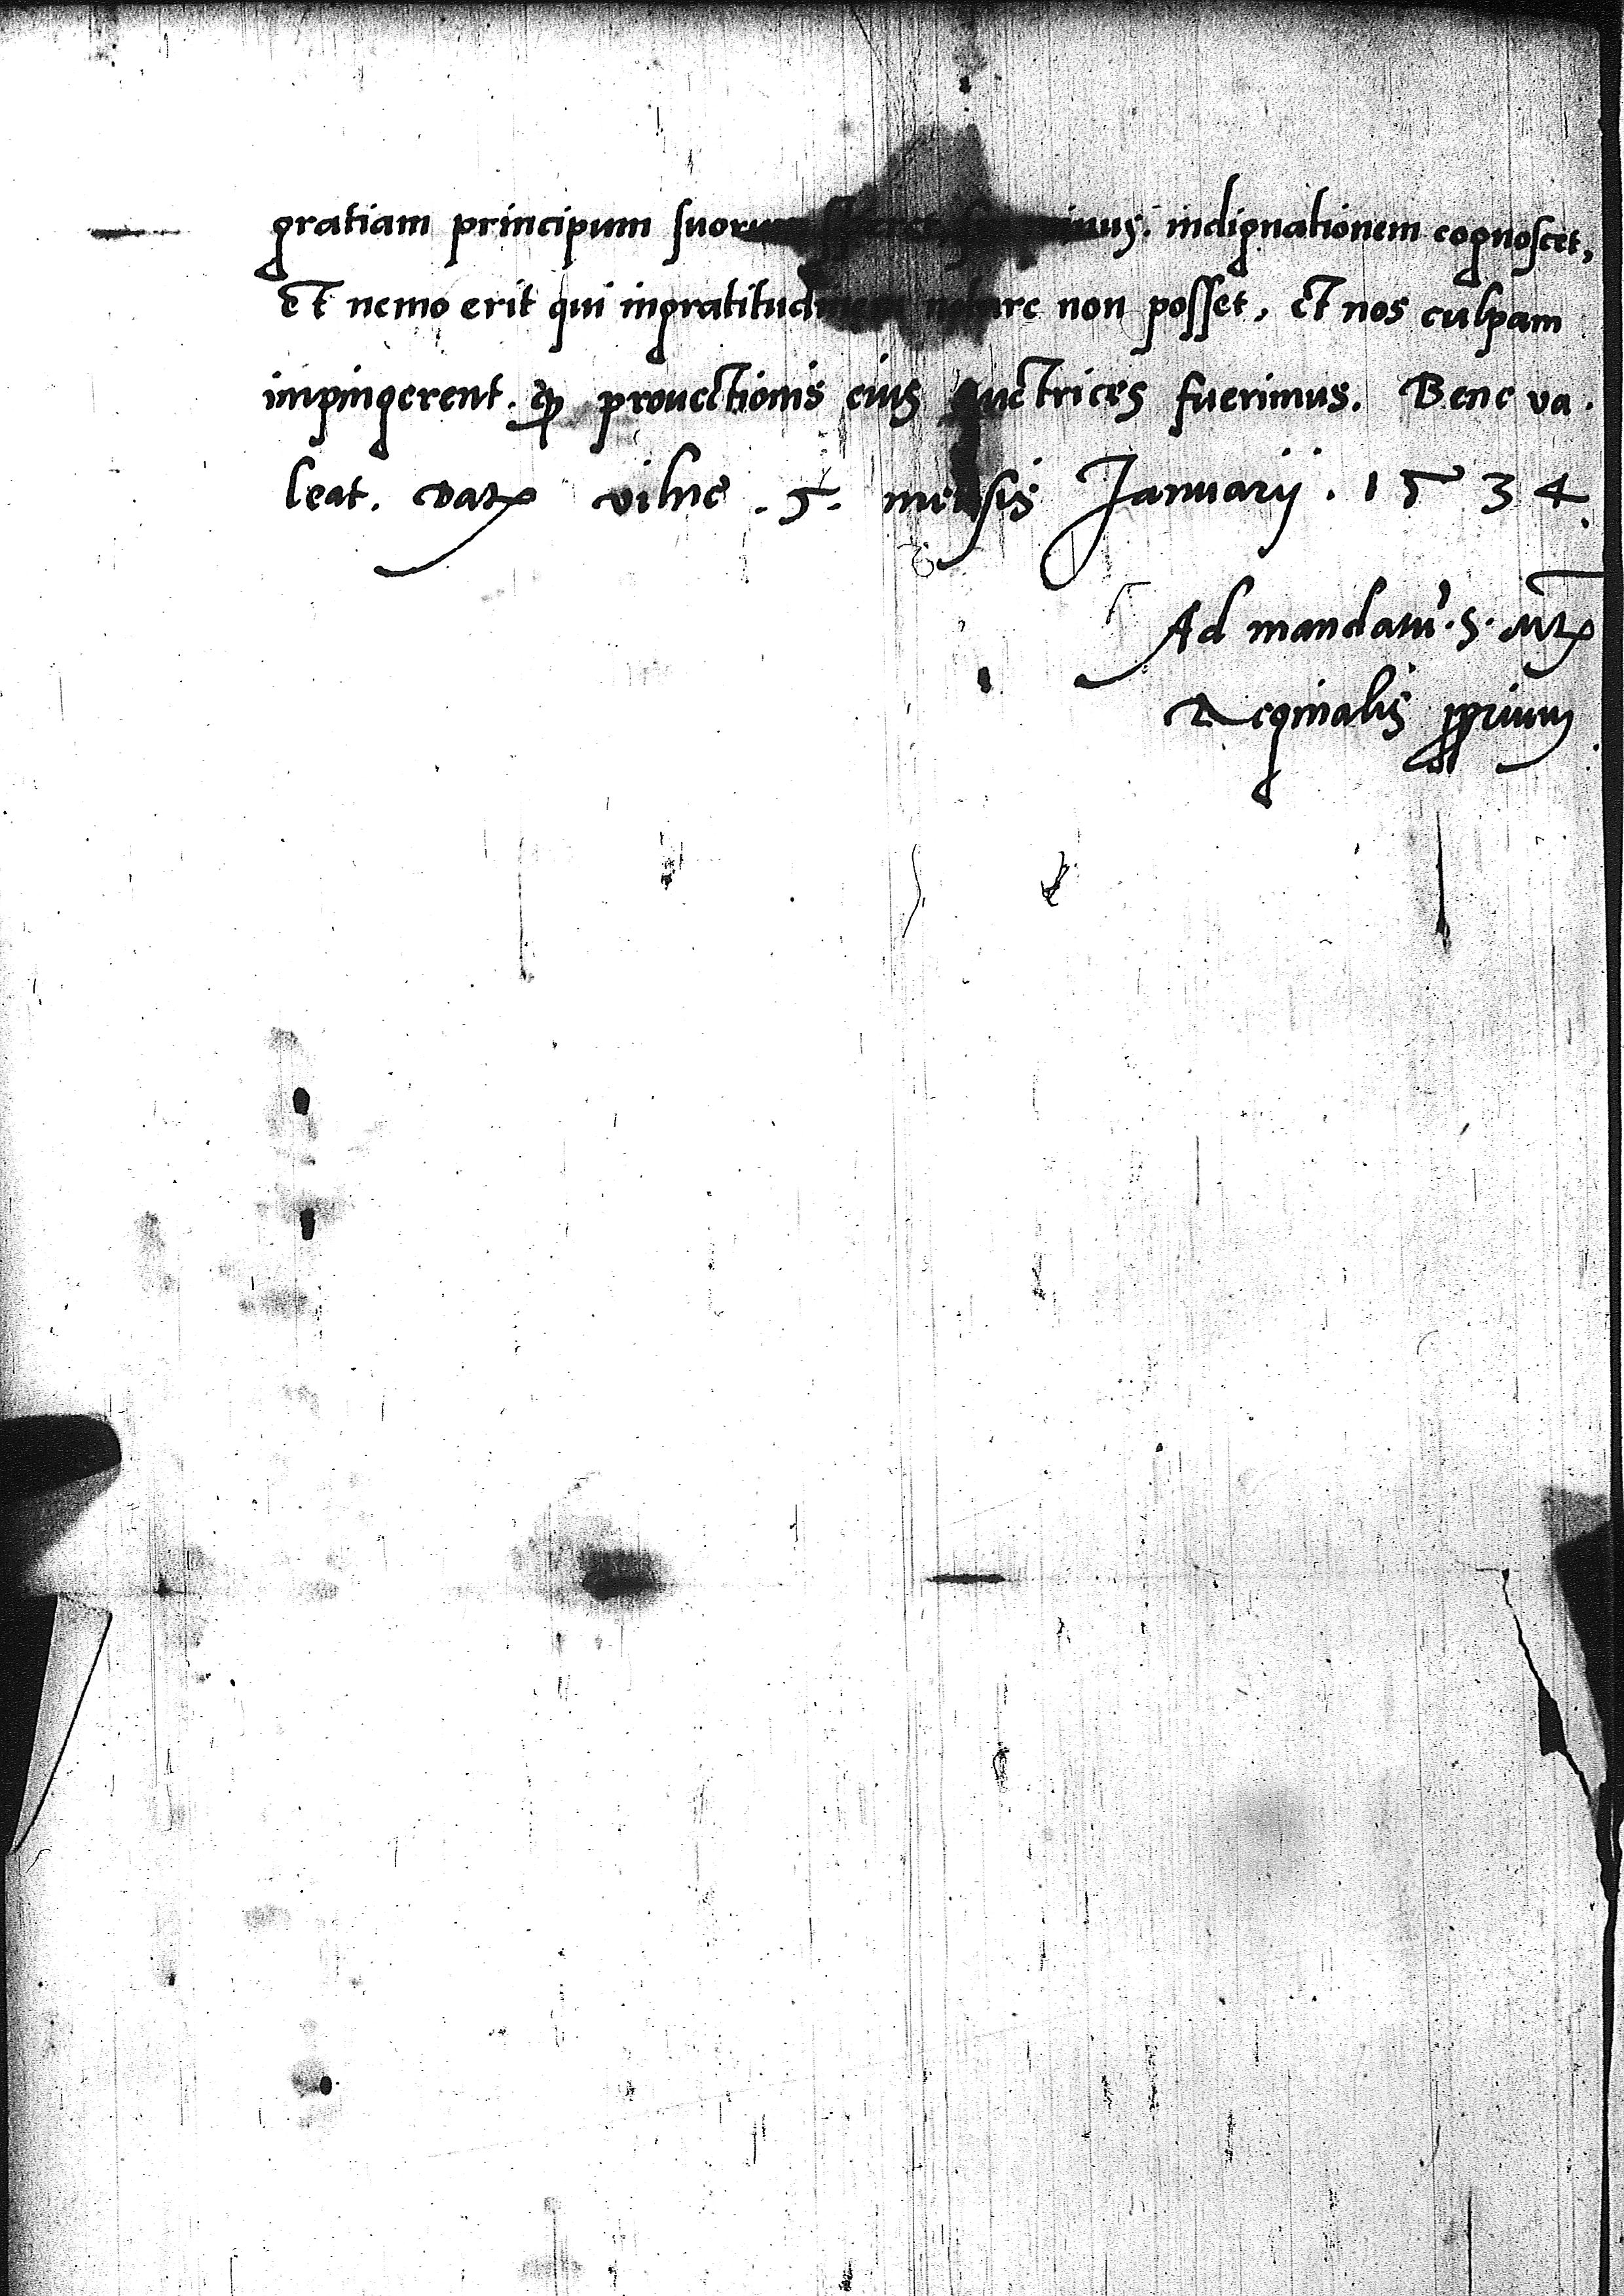 gratiam principum suorum indignationem cognoscet,
et nemo erit qui ingratitudinem notare non posset, et nos culpam
impingerent. qp prouectionis eius auctrices fuerimus. Bene va.
leat. Datx vilne .5. mensis Januarij . 1534.
Ad mandatu. S. Mtx
Reginalis pprium